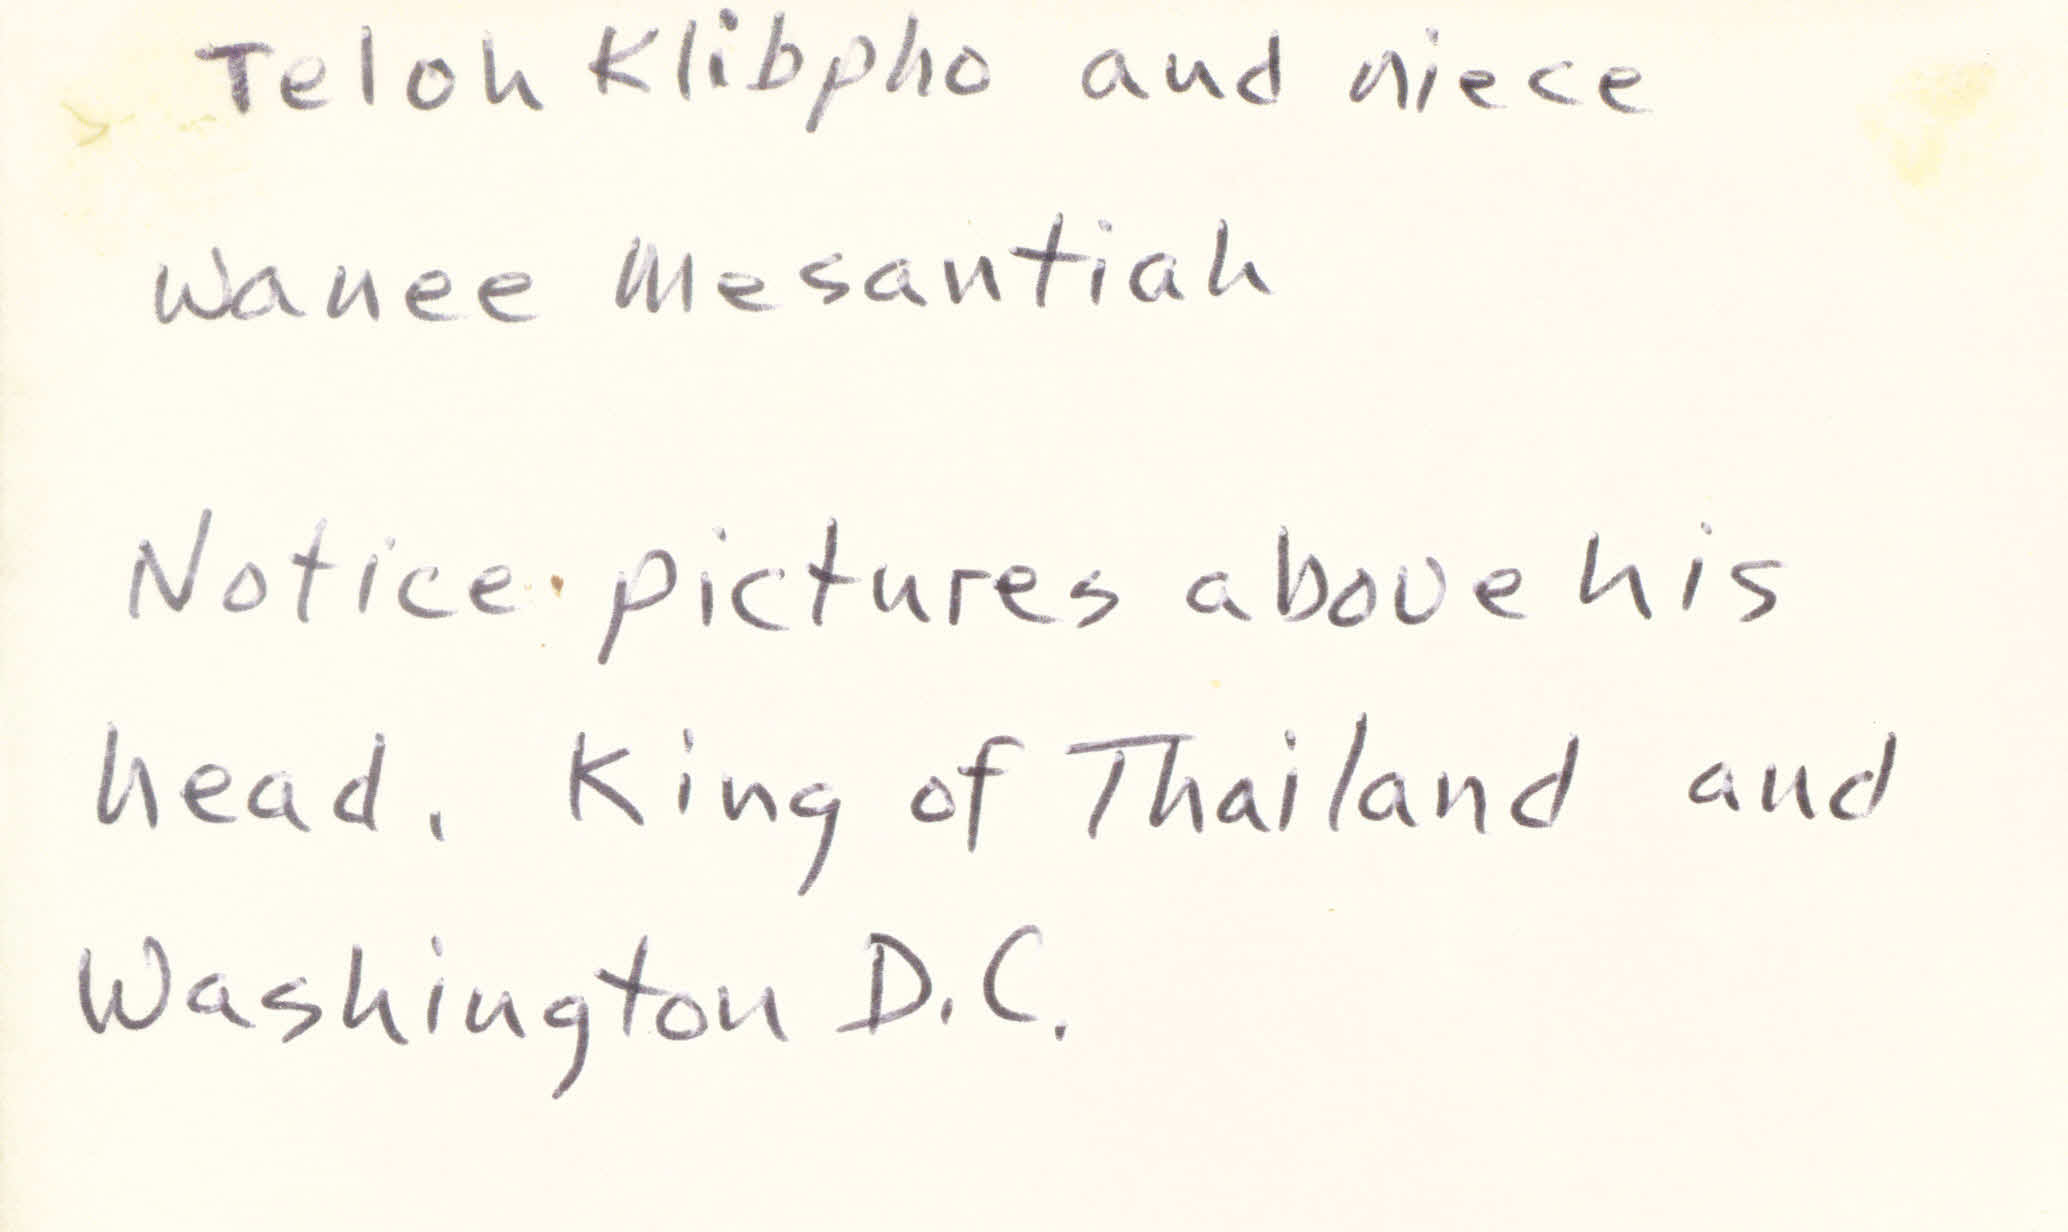 Teloh Klibpho and niece
Wanee Mesantiah
Notice pictures above his
head. King of Thailand and
Washington D.C.